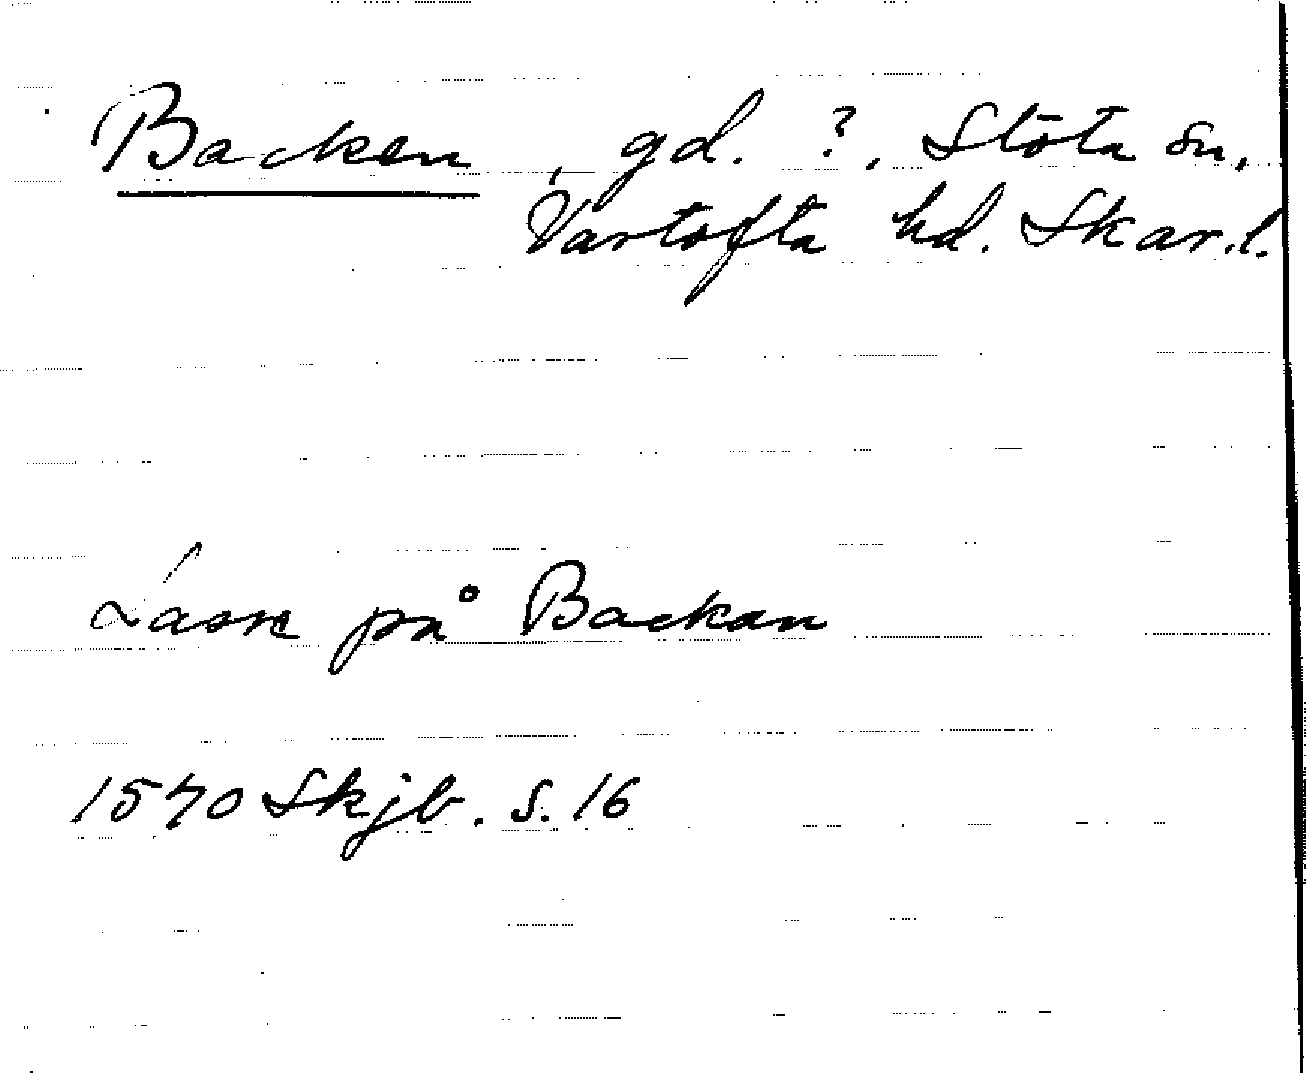 Backen, gd. ?, Slöta sn,
Vartofta hd. Skar.l.
Lasse på Backan
1570 Skjb. S. 16